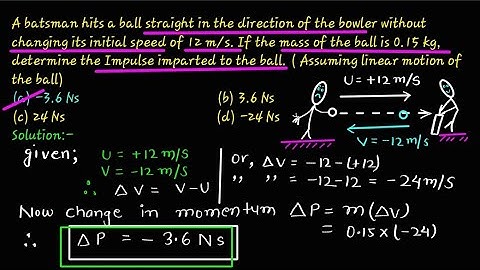 A batsman hits a ball straight in the direction of the bowler without
changing its initial speed of 12 m/s. If the mass of the ball is 0.15 kg,
determine the Impulse imparted to the ball. ( Assuming linear motion of
the ball)
(a) -3.6 Ns (b) 3.6 Ns
(c) 24 Ns (d) -24 Ns
U = +12 m/s
V = -12 m/s
Solution:-
given;
U = +12 m/s
V = -12 m/s
∴ ΔV = V-U
or, ΔV = -12-(+12)
" " = -12-12 = -24 m/s
Now change in momentum ΔP = m(ΔV)
= 0.15 × (-24)
∴ ΔP = - 3.6 Ns